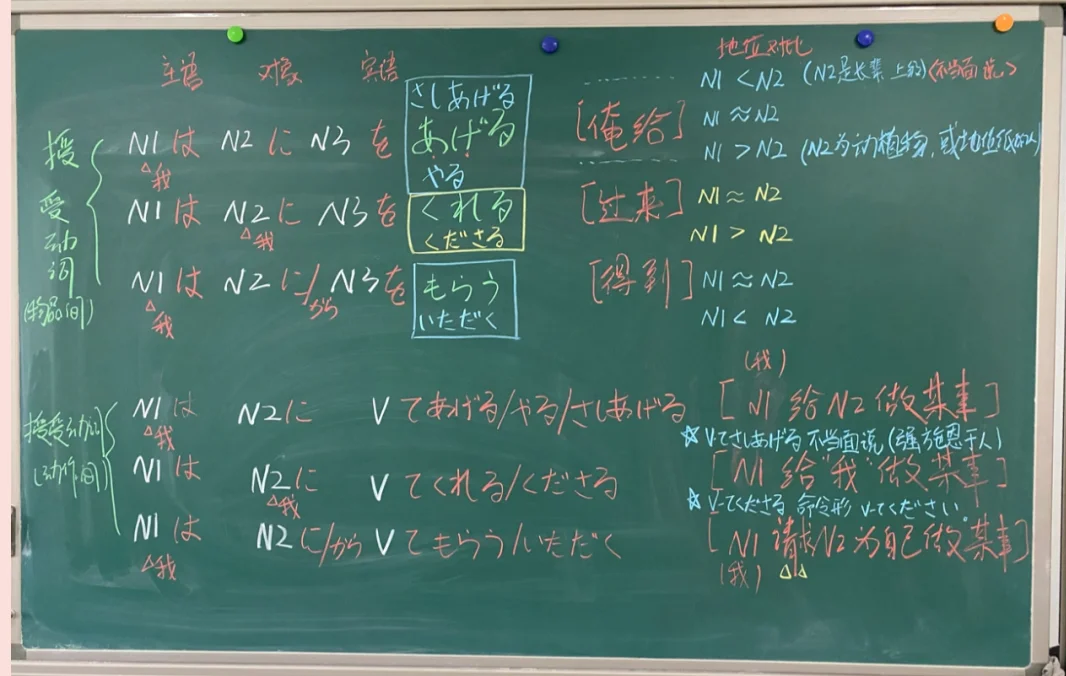 主语 对象 宾语 地位对比
さしあげる N1 < N2 (N2是长辈上级)(不当面说)
授受动词(物品间)
N1は N2に N3を あげる [俺给] N1 ≈ N2
△我
やる N1 > N2 (N2为动植物,或地位低的人)
N1は N2に N3を くれる [过来] N1 ≈ N2
△我
くださる N1 > N2
N1は N2に/から N3を もらう [得到] N1 ≈ N2
△我
いただく N1 < N2
授受动词(动作间)
(我)
N1は N2に Vてあげる/やる/さしあげる [N1给N2做某事]
△我
☆ V-てさしあげる 不当面说(强施恩于人)
N1は N2に Vてくれる/くださる [N1给"我"做某事]
△我
☆ V-てくださる 命令形 V-てください。
N1は N2に/から Vてもらう/いただく [N1请求N2为自己做某事]
△我
(我) △△